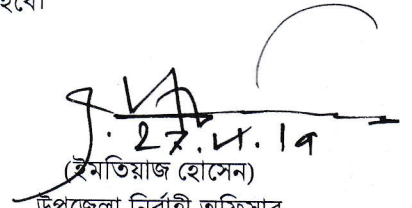 হবে।
27.11.19
(ইমতিয়াজ হোসেন)
উপজেলা নির্বাহী অফিসার